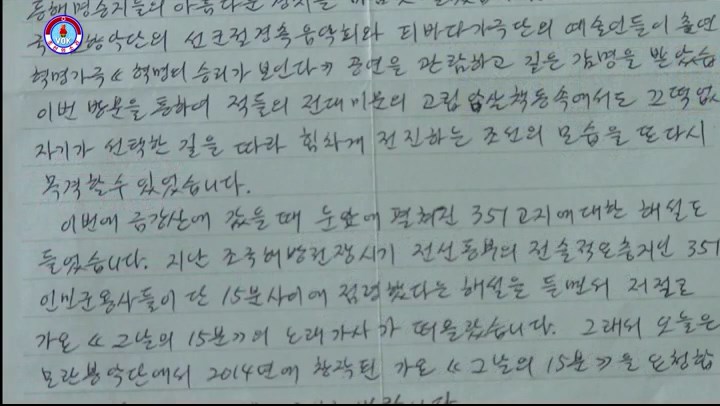 동해명승지들의 아름다운 경치를
국 향악단의 선군절경축음악회와 피바다가극단의 예술인들이 출연
혁명가극《혁명의 승리가 보인다》공연을 관람하고 깊은 감명을 받았습
이번 방문을 통하여 적들의 전대미문의 고립압살책동속에서도 끄떡없
자기가 선택한 길을 따라 힘차게 전진하는 조선의 모습을 또다시
목격할수 있었습니다.
이번에 금강산에 갔을 때 눈앞에 펼쳐진 351고지에 대한 해설도
들었습니다. 지난 조국해방전쟁시기 전선동부의 전술적요충지인 351
인민군용사들이 단 15분사이에 점령했다는 해설을 들면서 저절로
가요《그날의 15분》의 노래가사가 떠올랐습니다. 그래서 오늘은
모란봉악단에서 2014년에 창작된 가요《그날의 15분》을 요청합